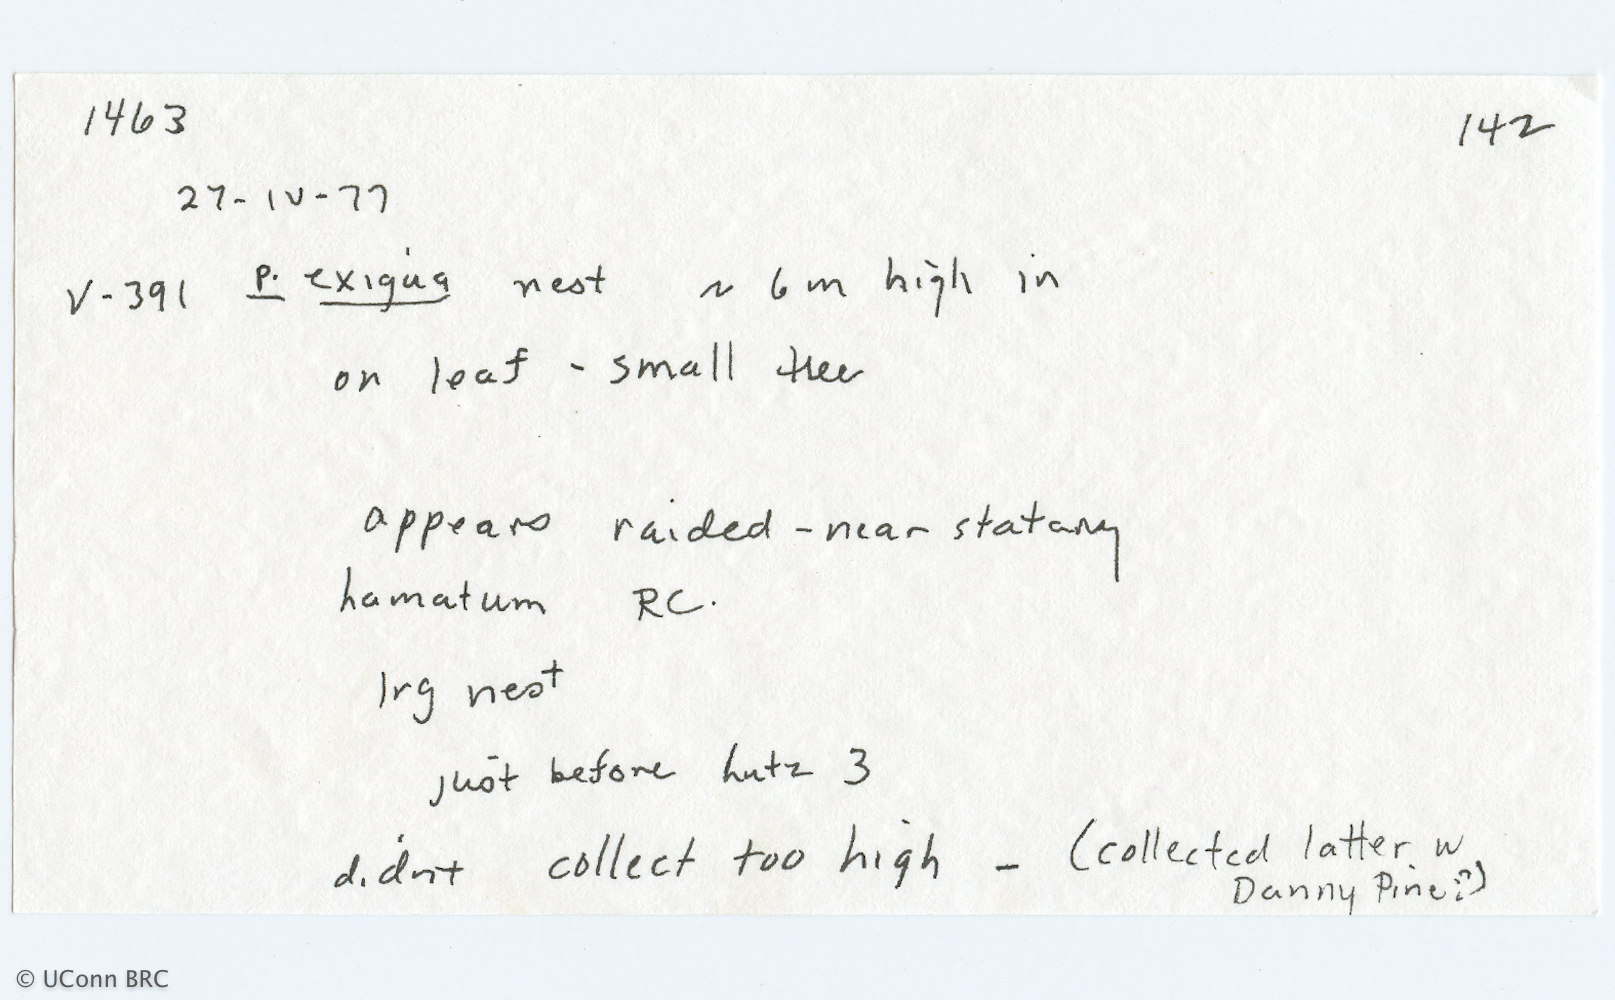 1463
142
27-IV-77
V-391 P. exigua nest ~ 6m high in
on leaf - small tree
appears raided - near statary
hamatum RC.
lrg nest
just before hutz 3
didn't collect too high - (collected latter w
Danny Pine?)
© UConn BRC